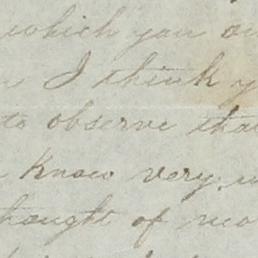 which you
I think
to observe
know very
thought of